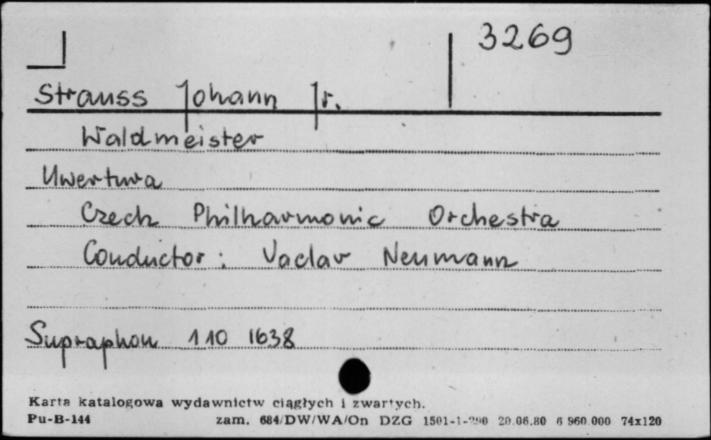 3269
Strauss Johann Jr.
Waldmeister
Uwertura
Czech Philharmonic Orchestra
Conductor: Vaclav Neumann
Supraphon 110 1638
Karta katalogowa wydawnictw ciągłych i zwartych.
Pu-B-144 zam. 684/DW/WA/On DZG 1501-1- 20.06.80 6 960 000 74x120